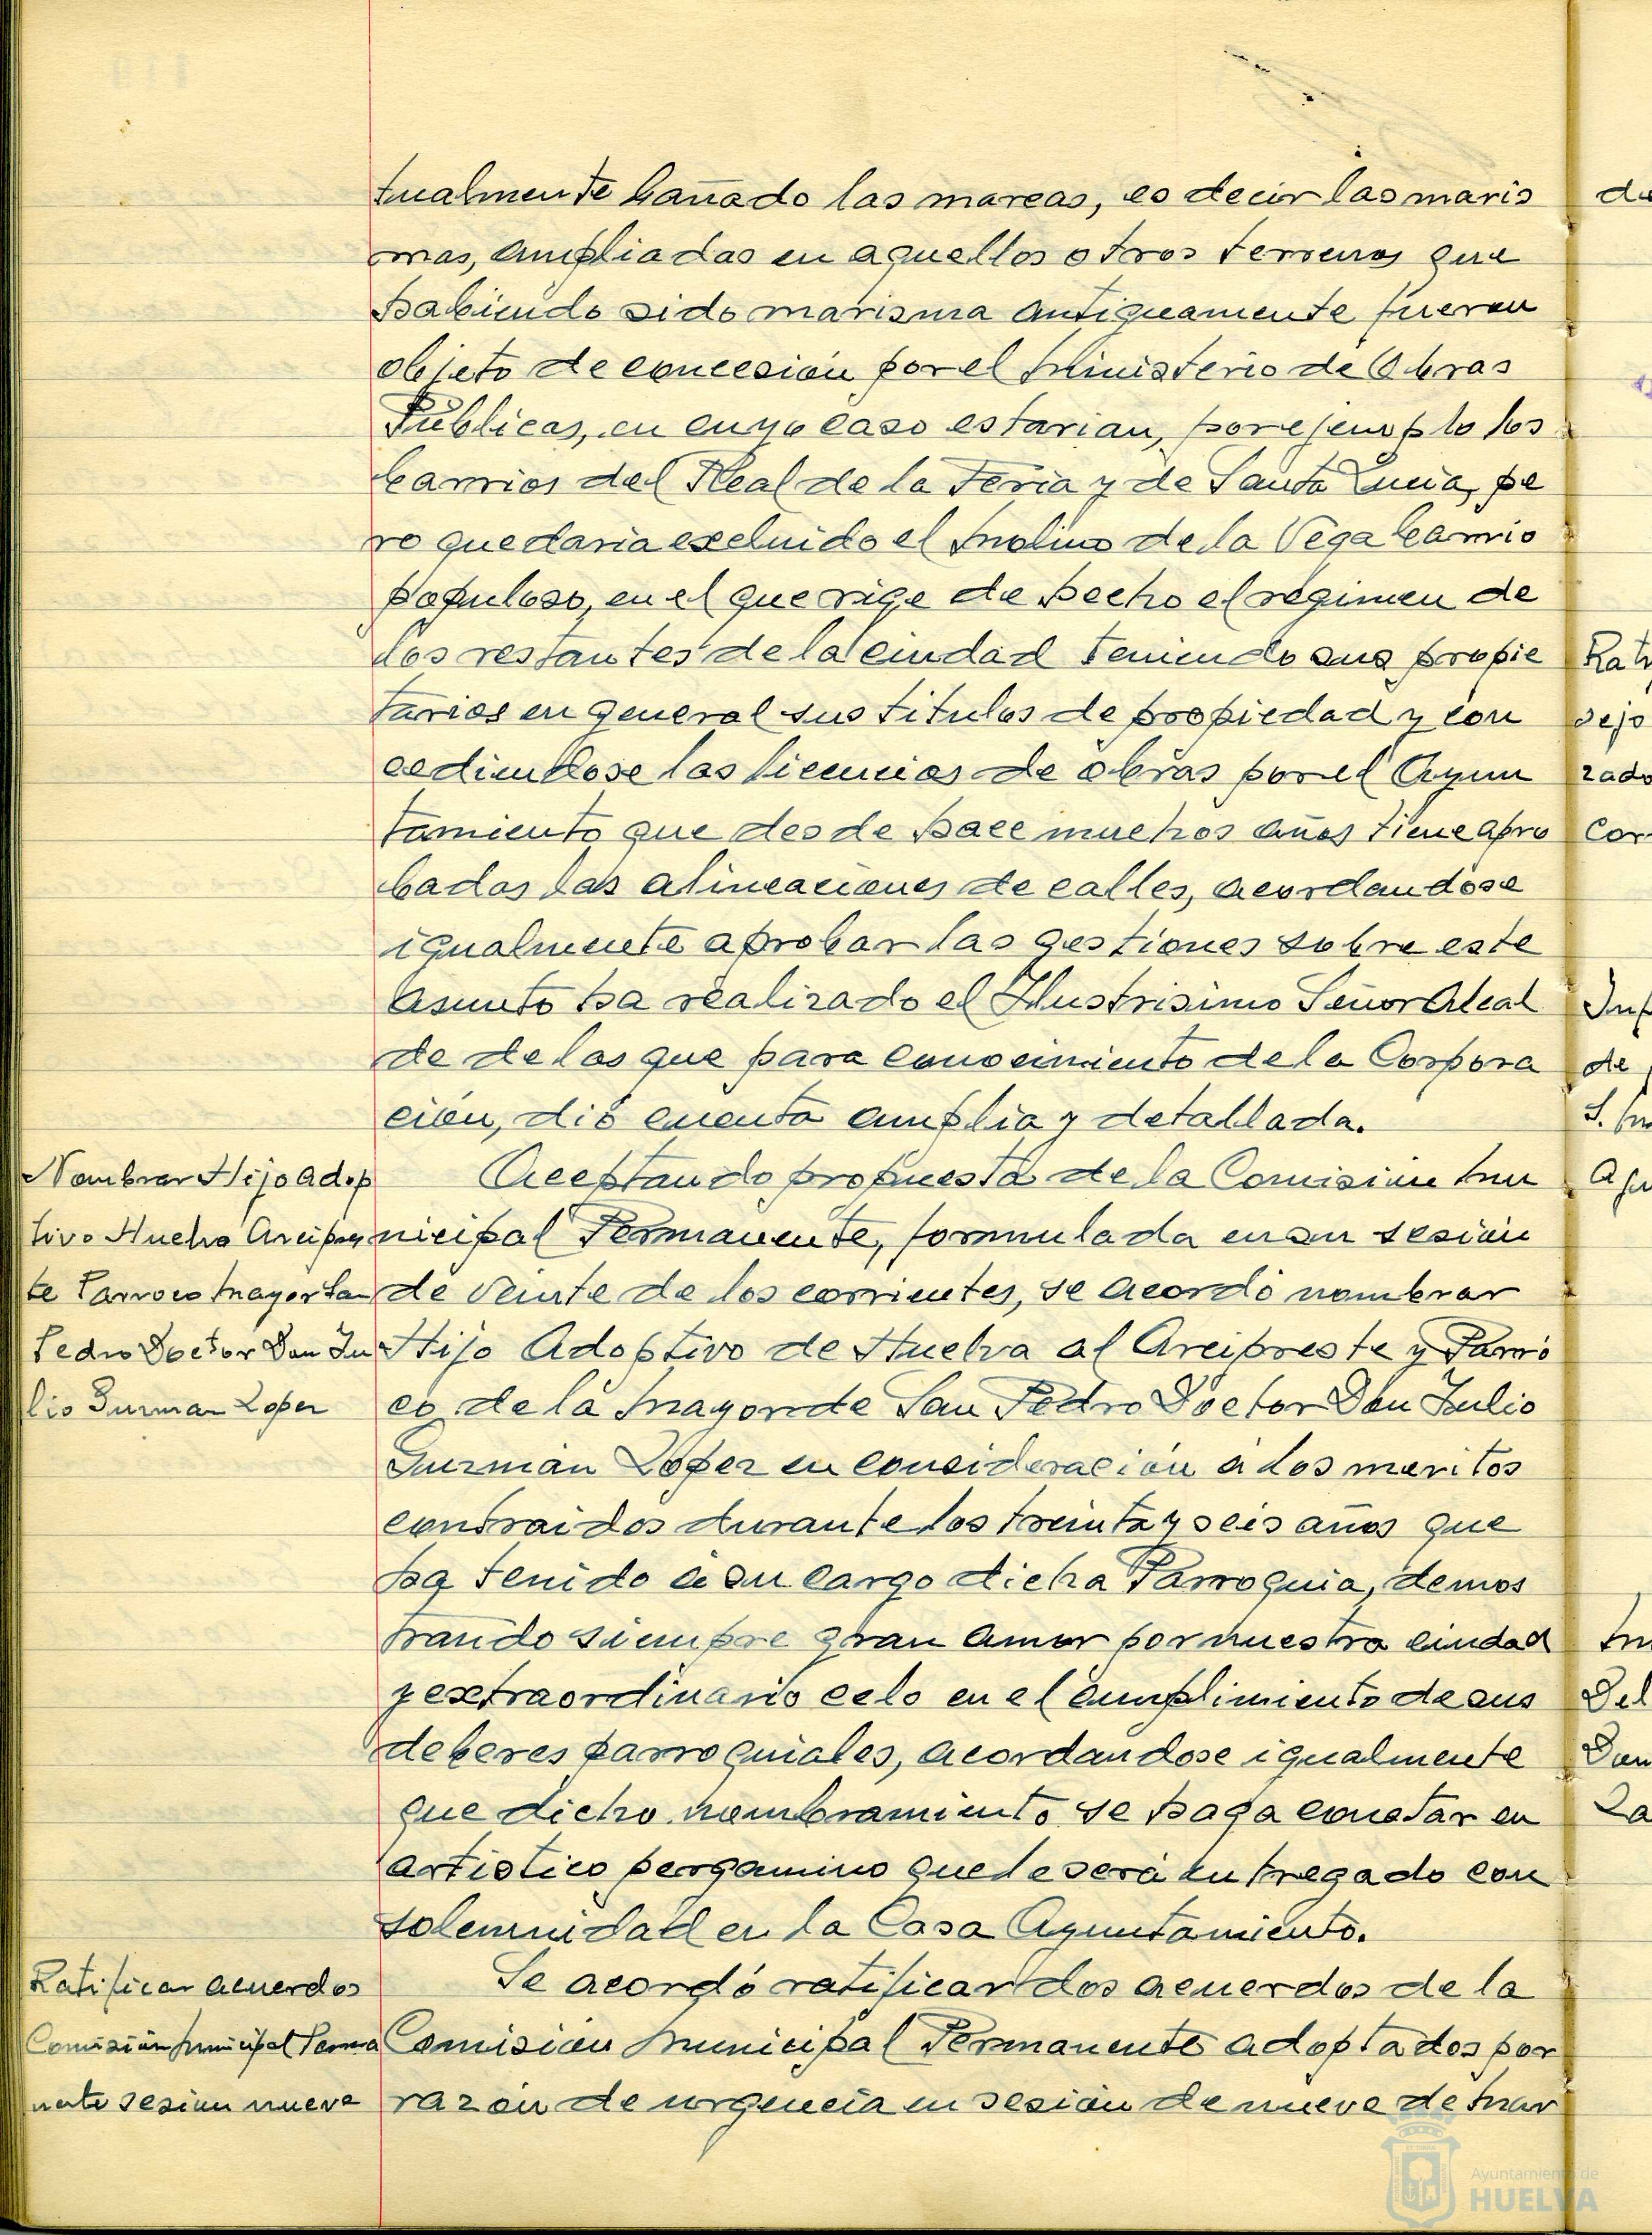 tualmente bañado las mareas, es decir las maris
mas, ampliadas en aquellos otros terrenos que
habiendo sido marisma antiguamente fueron
objeto de concesión por el Ministerio de Obras
Públicas, en cuyo caso estarian, por ejemplo los
barrios del Real de la Feria y de Santa Lucia, pe
ro quedaria excluido el Molino de la Vega barrio
populoso, en el que rige de hecho el régimen de
los restantes de la ciudad teniendo sus propie
tarios en general sus titulos de propiedad y con
cediendose las licencias de obras por el Ayun
tamiento que desde hace muchos años tiene apro
badas las alineaciones de calles, acordandose
igualmente aprobar las gestiones sobre este
asunto ha realizado el Ilustrisimo Señor Alcal
de de las que para conocimiento de la Corpora
ción, dió cuenta amplia y detallada.
Nombrar Hijo Adop
tivo Huelva Arcipres
te Parroco Mayor San
Pedro Doctor Don Ju
lio Guzman Lopez
Aceptando propuesta de la Comision Mu
nicipal Permanente, formulada en su sesión
de veinte de los corrientes, se acordó nombrar
Hijo Adoptivo de Huelva al Arcipreste y Parró
co de la Mayor de San Pedro Doctor Don Julio
Guzmán López en consideración a los meritos
contraidos durante los treinta y seis años que
ha tenido a su cargo dicha Parroquia, demos
trando siempre gran amor por nuestra ciudad
y extraordinario celo en el cumplimiento de sus
deberes parroquiales, acordandose igualmente
que dicho nombramiento se haga constar en
artistico pergamino que le será entregado con
solemnidad en la Casa Ayuntamiento.
Ratificar acuerdos
Comisión Municipal Perma
nente sesion nueve
Se acordó ratificar los acuerdos de la
Comisión Municipal Permanente adoptados por
razón de urgencia en sesión de nueve de Mar
Ayuntamiento de
HUELVA